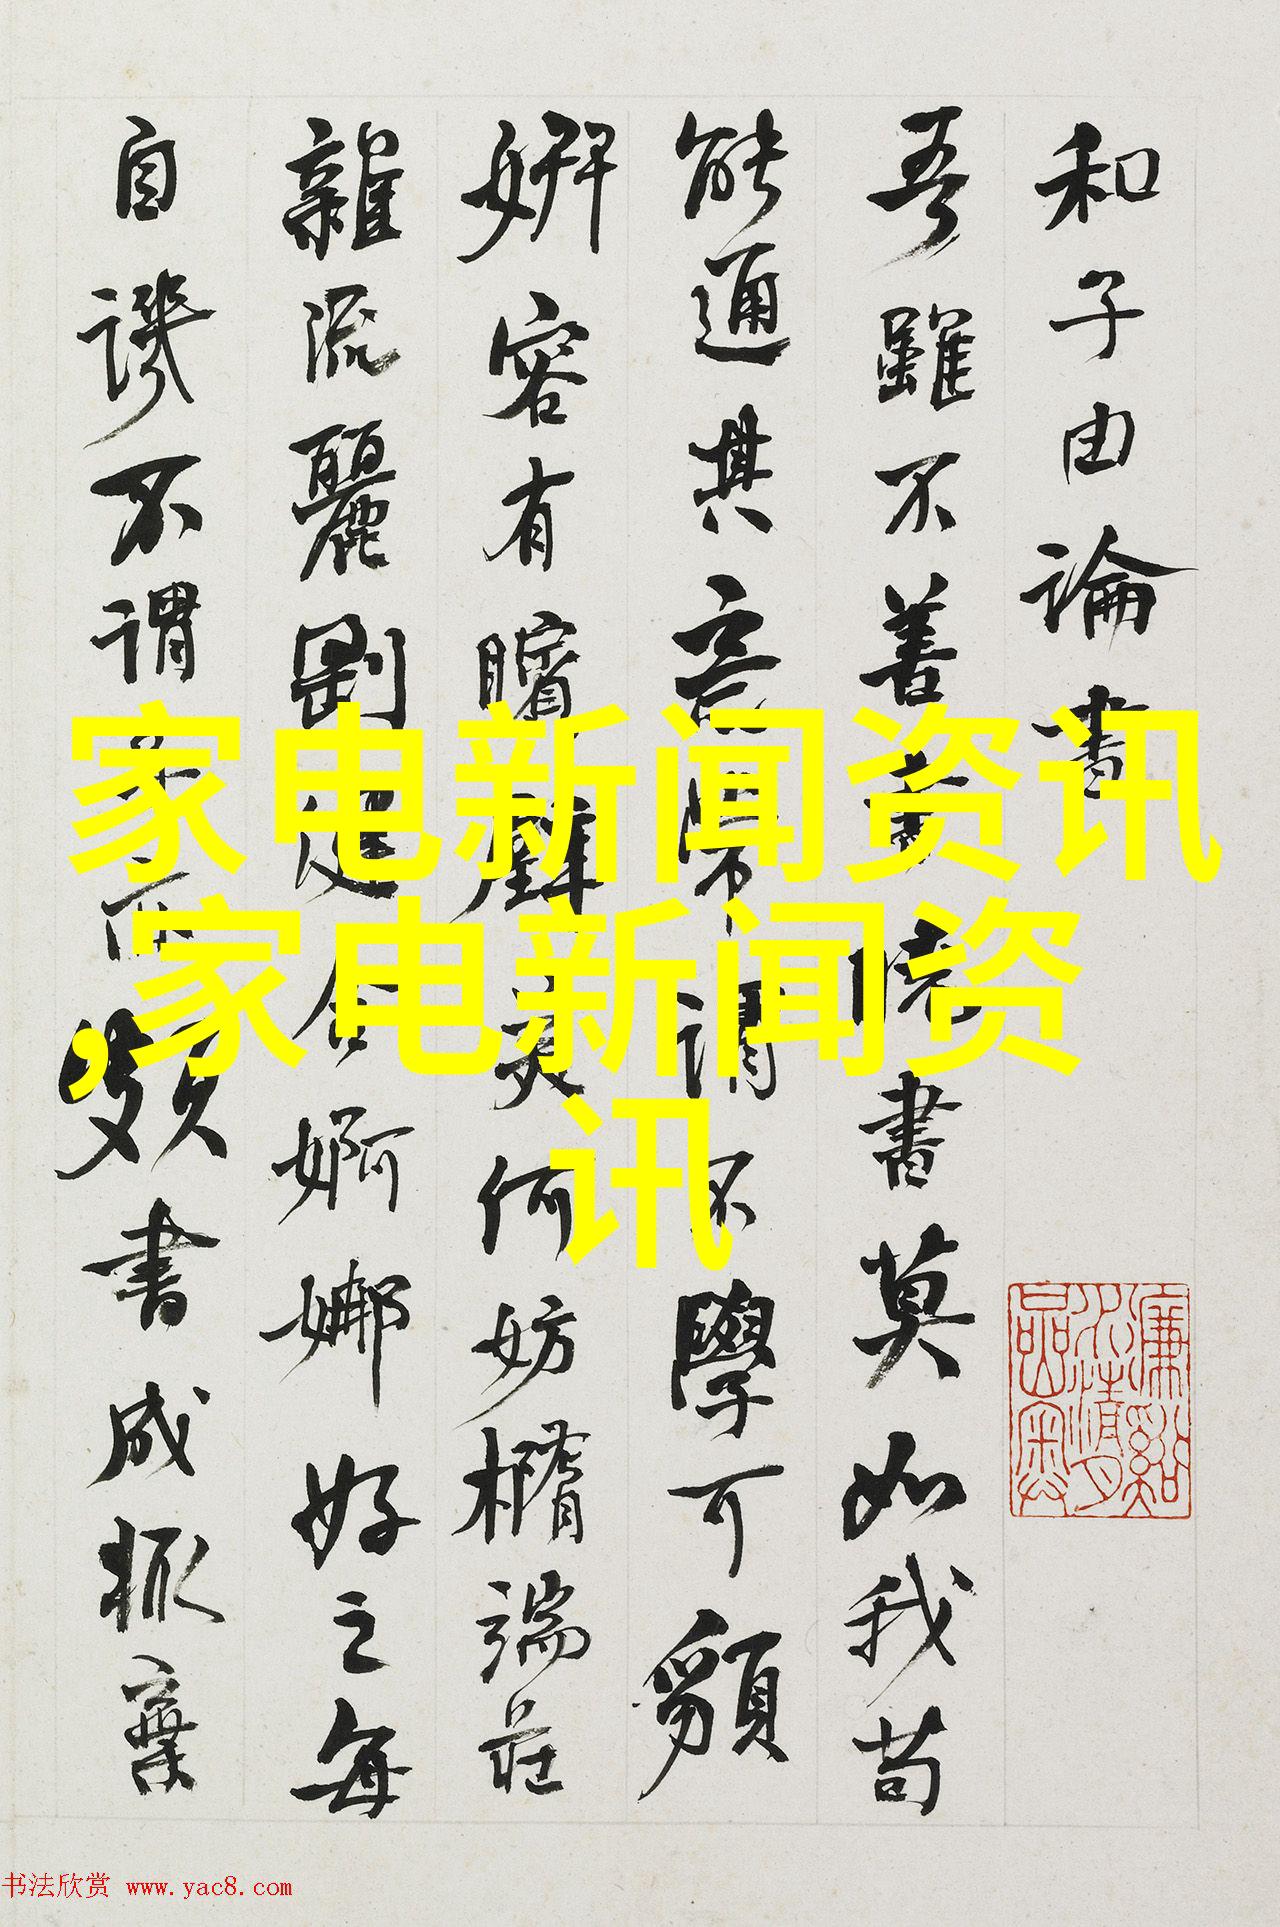 和子由論書
吾雖不善書曉書莫如我苟
能通其意常謂不學可貌
妍容有矉璧美何妨橢端莊
雜流麗剛健含婀娜好之每
自譏不謂子亦頗書成輒棄
家电新闻资讯
,家电新闻资
讯
书法欣赏 www.yac8.com